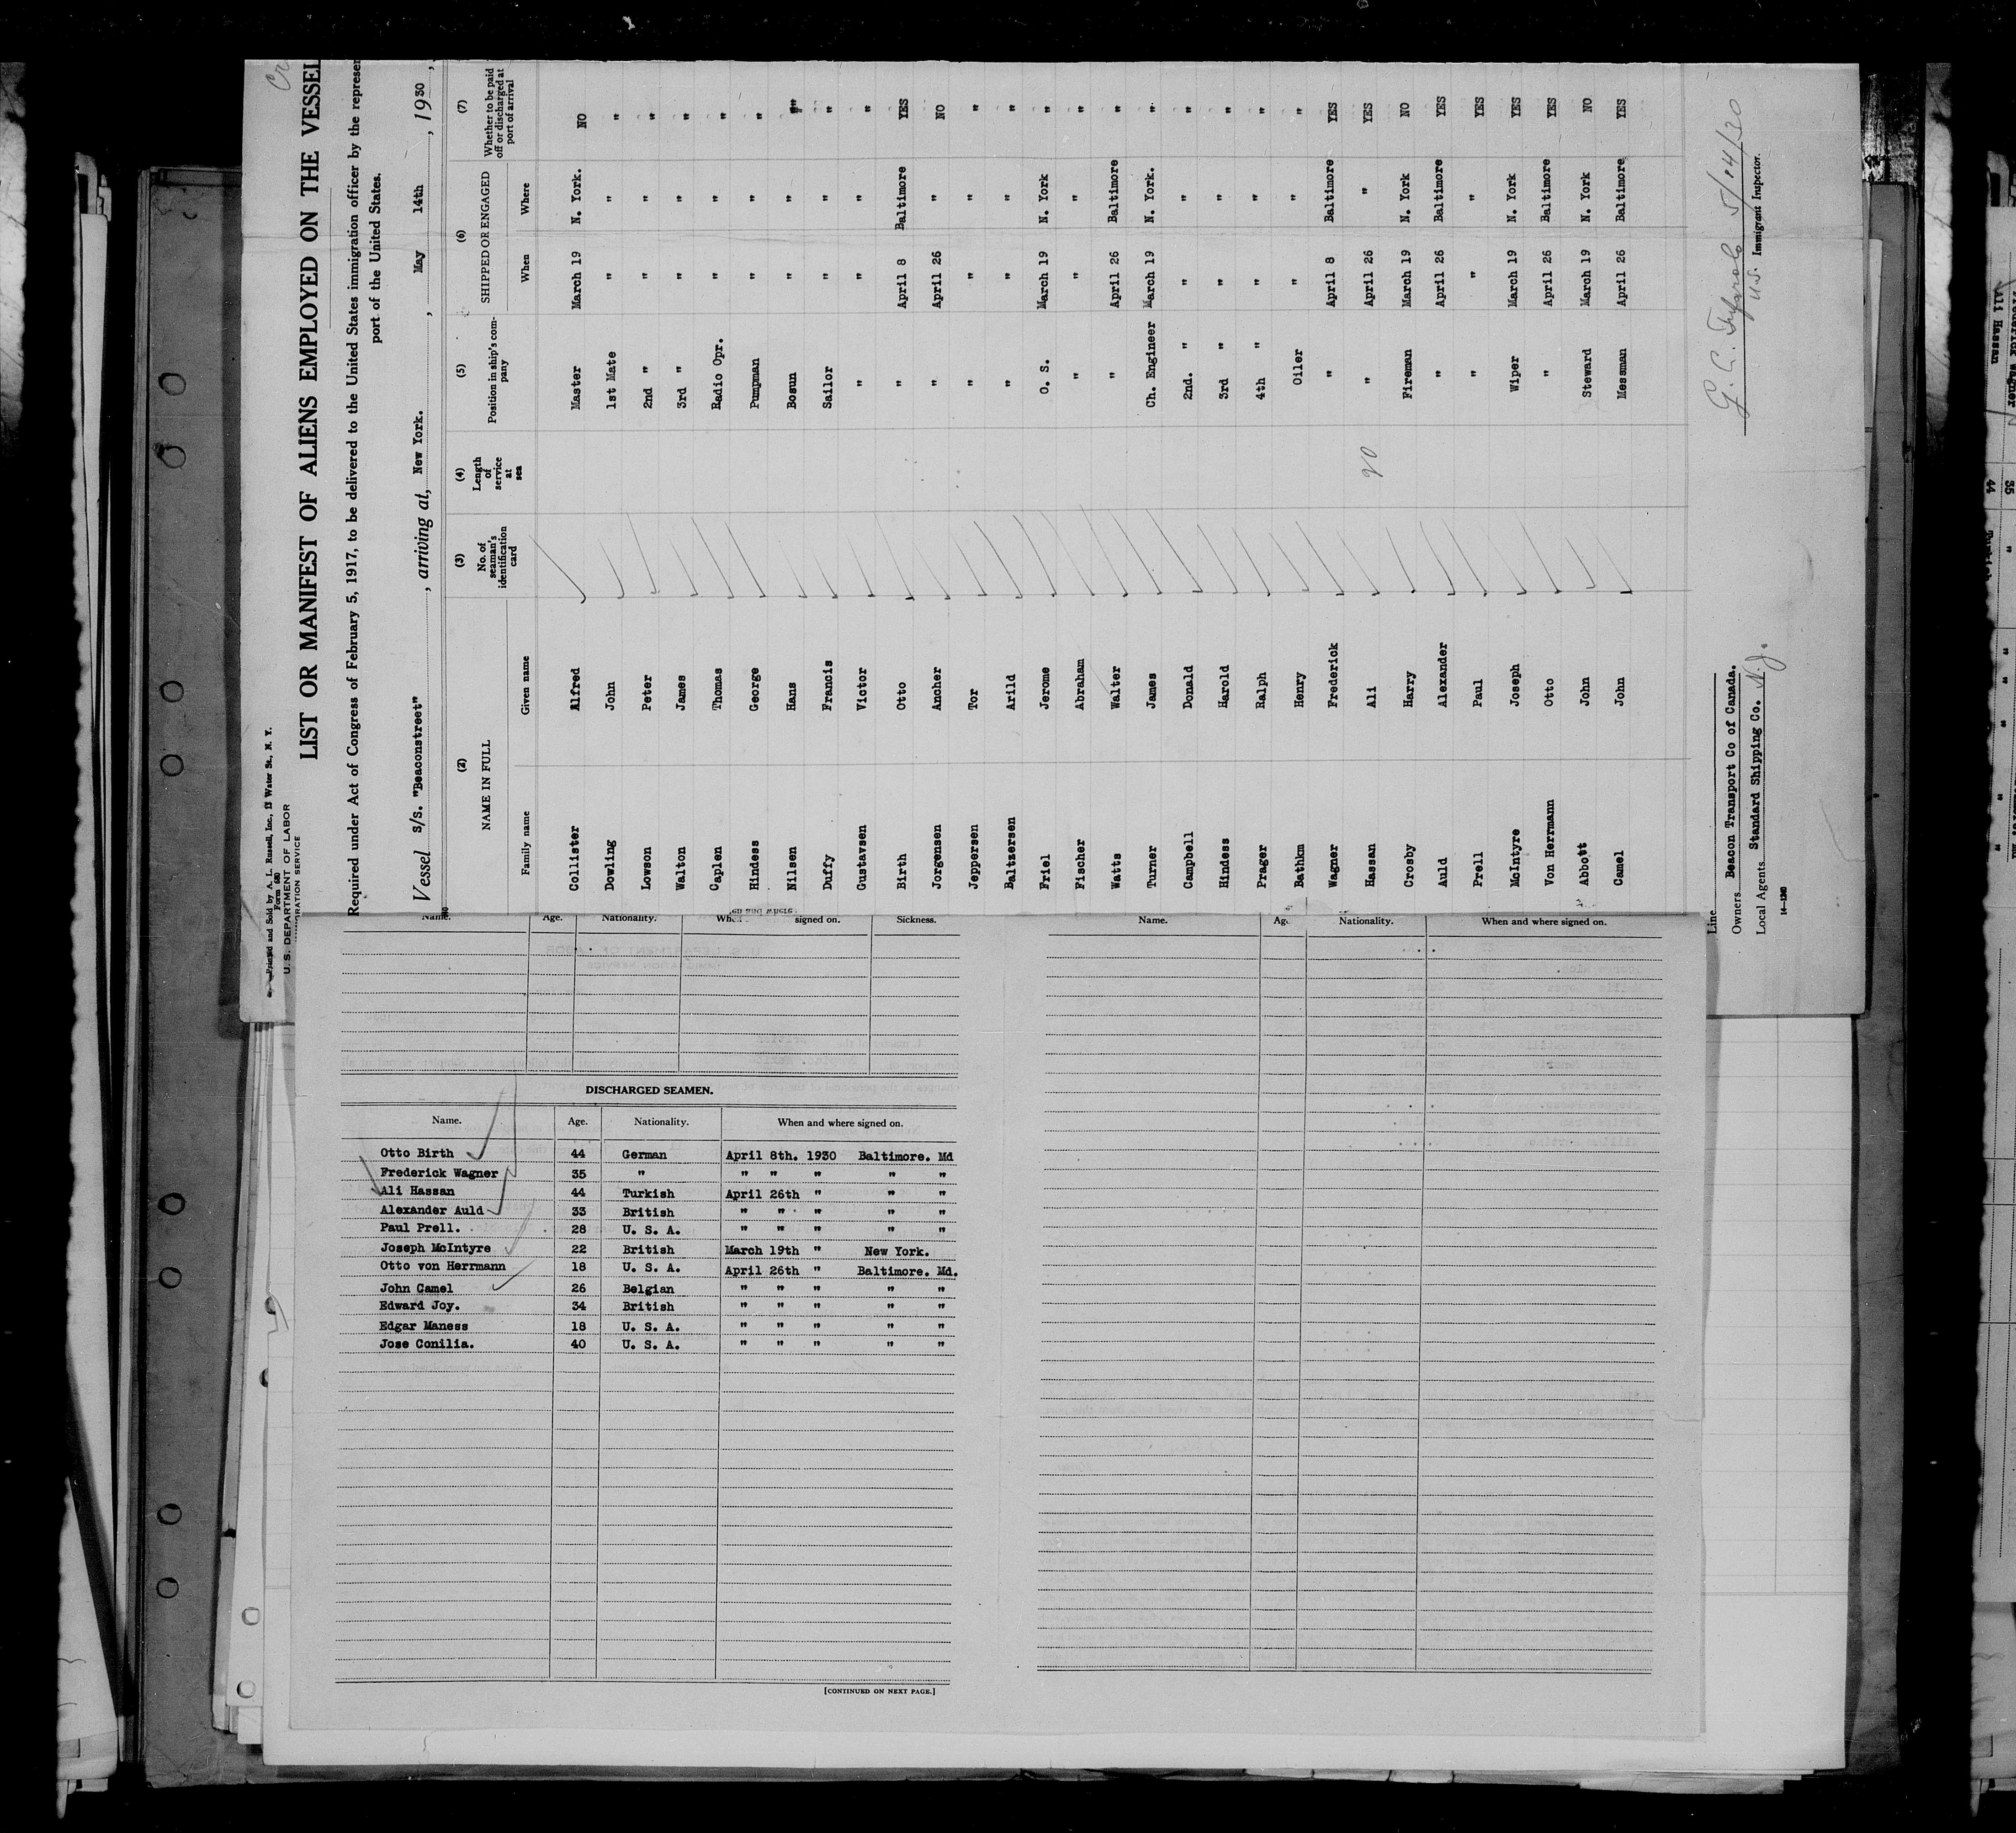 Printed and Sold by A. L. Russell, Inc., 12 Water St., N. Y.
Form 680
U. S. DEPARTMENT OF LABOR
LIST OR MANIFEST OF ALIENS EMPLOYED ON THE VESSEL
Required under Act of Congress of February 5, 1917, to be delivered to the United States immigration officer by the represen
port of the United States.
Vessel s/s. "Beaconstreet", arriving at, New York., May 14th, 1930,
(2) (3) (4) (5) (6) (7)
NAME IN FULL No. of seaman's identification card Length of service at sea Position in ship's company SHIPPED OR ENGAGED Whether to be paid off or discharged at port of arrival
Family name Given name When Where
Collister Alfred Master March 19 N. York. NO
Dowling John 1st Mate " " "
Lowson Peter 2nd " " " "
Walton James 3rd " " " "
Caplen Thomas Radio Opr. " " "
Hindess George Pumpman " " "
Nilsen Hans Bosun " " "
Duffy Francis Sailor " " "
Gustavsen Victor " " " "
Birth Otto " April 8 Baltimore YES
Jorgensen Ancher " April 26 " NO
Jeppersen Tor " " " "
Baltzersen Arild " " " "
Friel Jerome O. S. March 19 N. York "
Fischer Abraham " " " "
Watts Walter " April 26 Baltimore "
Turner James Ch. Engineer March 19 N. York. "
Campbell Donald 2nd. " " " "
Hindess Harold 3rd " " " "
Prager Ralph 4th " " " "
Bathkm Henry Oiler " " "
Wagner Frederick " April 8 Baltimore YES
Hassan Ali 20 " April 26 " YES
Crosby Harry Fireman March 19 N. York NO
Auld Alexander " April 26 Baltimore YES
Prell Paul " " " YES
McIntyre Joseph Wiper March 19 N. York YES
Von Herrmann Otto " April 26 Baltimore YES
Abbott John Steward March 19 N. York NO
Camel John Messman April 26 Baltimore YES
Line
Owners Beacon Transport Co of Canada.
Local Agents Standard Shipping Co. N. J.
5/14/30
U.S. Immigrant Inspector.
14—1240
Name. Age. Nationality. When and where signed on. Sickness.
DISCHARGED SEAMEN.
Name. Age. Nationality. When and where signed on.
Otto Birth 44 German April 8th. 1930 Baltimore. Md
Frederick Wagner 35 " " " " " "
Ali Hassan 44 Turkish April 26th " " "
Alexander Auld 33 British " " " " "
Paul Prell. 28 U. S. A. " " " " "
Joseph McIntyre 22 British March 19th " New York.
Otto von Herrmann 18 U. S. A. April 26th " Baltimore. Md.
John Camel 26 Belgian " " " " "
Edward Joy. 34 British " " " " "
Edgar Maness 18 U. S. A. " " " " "
Jose Conilia. 40 U. S. A. " " " " "
[CONTINUED ON NEXT PAGE.]
Name. Ag. Nationality. When and where signed on.
Ali Hassan
35
44